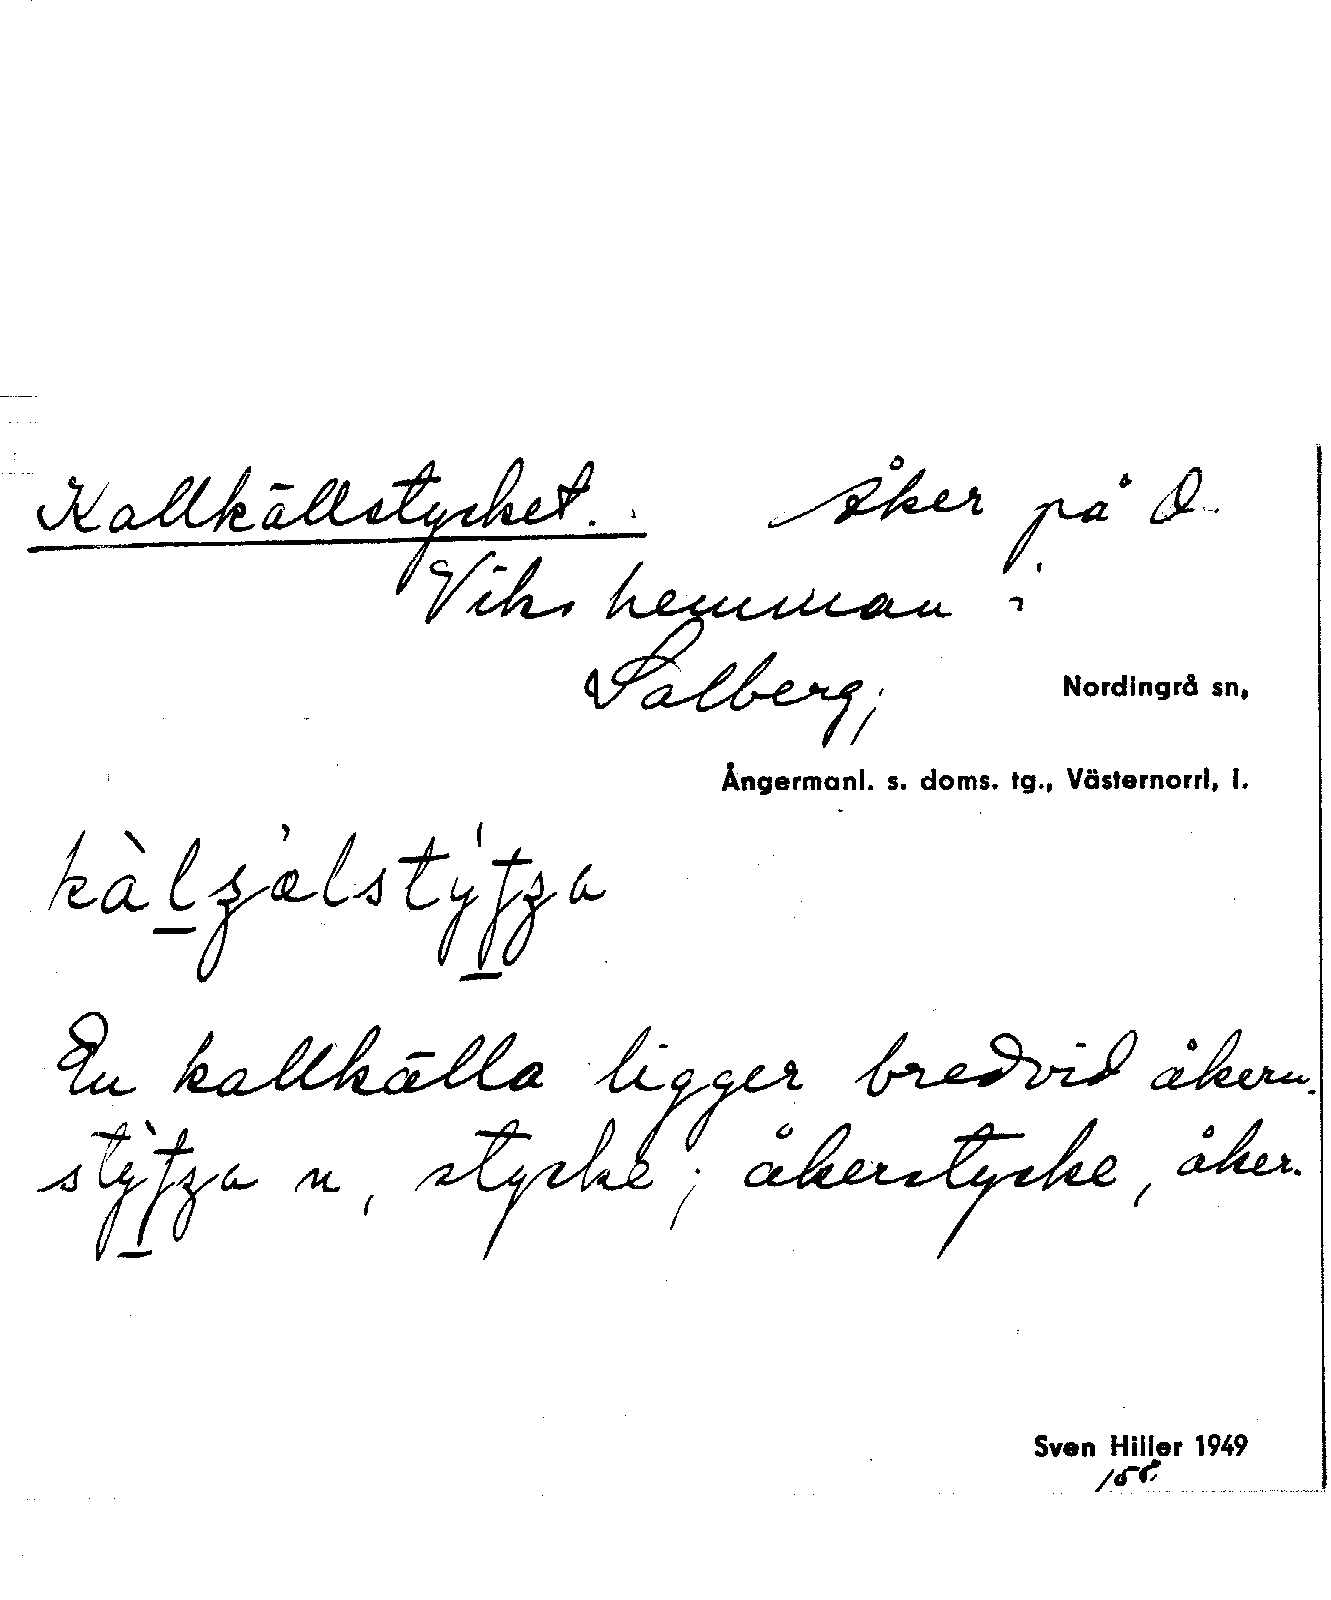 Kallkällstycket. Åker på O.
Viks hemman i
Salberg, Nordingrå sn,
Ångermanl. s. doms. tg., Västernorrl, l.
En kallkälla ligger bredvid åkern.
n, stycke; åkerstycke, åker.
Sven Hiller 1949